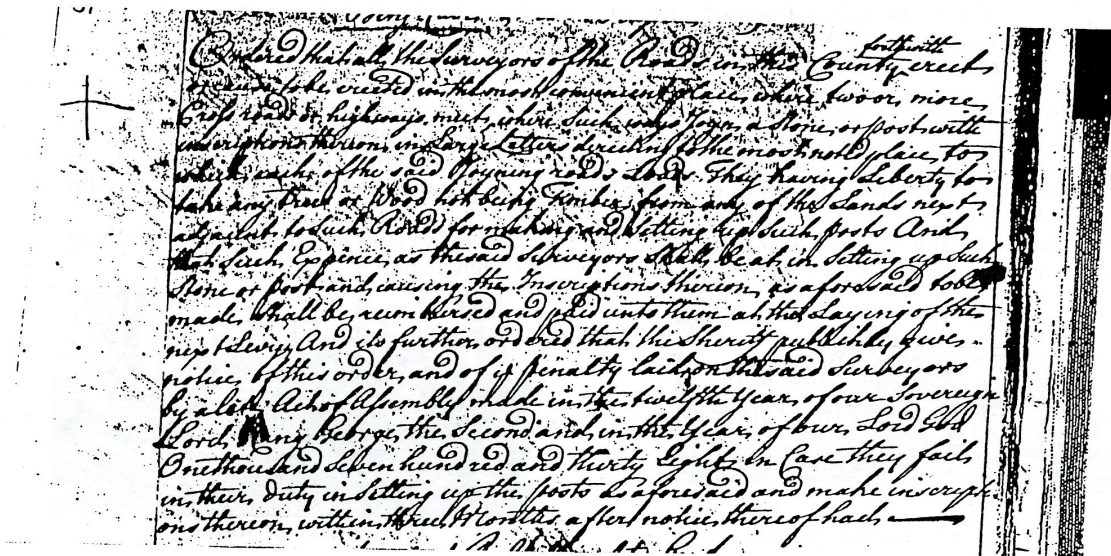 Ordered that all the Surveyors of the Roads in this County forthwith erect
or cause to be erected in the most convenient place where two or more
Cross roads or highways meet, where Such ways Joyn, a Stone or post with
inscriptions thereon in Large Letters directing to the most noted place to
which each of the said Joyning roads Leads. They having Liberty to
take any Tree or Wood not being Timber from any of the Lands next
adjacent to Such Roads for making and Setting up Such posts And
that Such Expence as the said Surveyors Shall be at in Setting up Such
Stone or post and causing the Inscriptions thereon as aforesaid to be
made, Shall be reimbersed and paid unto them at the Laying of the
next Levy, And its further ordered that the Sherif publickly give
notice of this order, and of ye penalty laid on the said Surveyors
by a late Act of Assembly made in the twelfth Year of our Sovereign
Lord King George the Second and in the Year of our Lord God
One thousand Seven hundred and thirty Eight, in Case they fail
in their duty in Setting up the posts as aforesaid and make inscripti-
ons thereon within three Months after notice thereof had